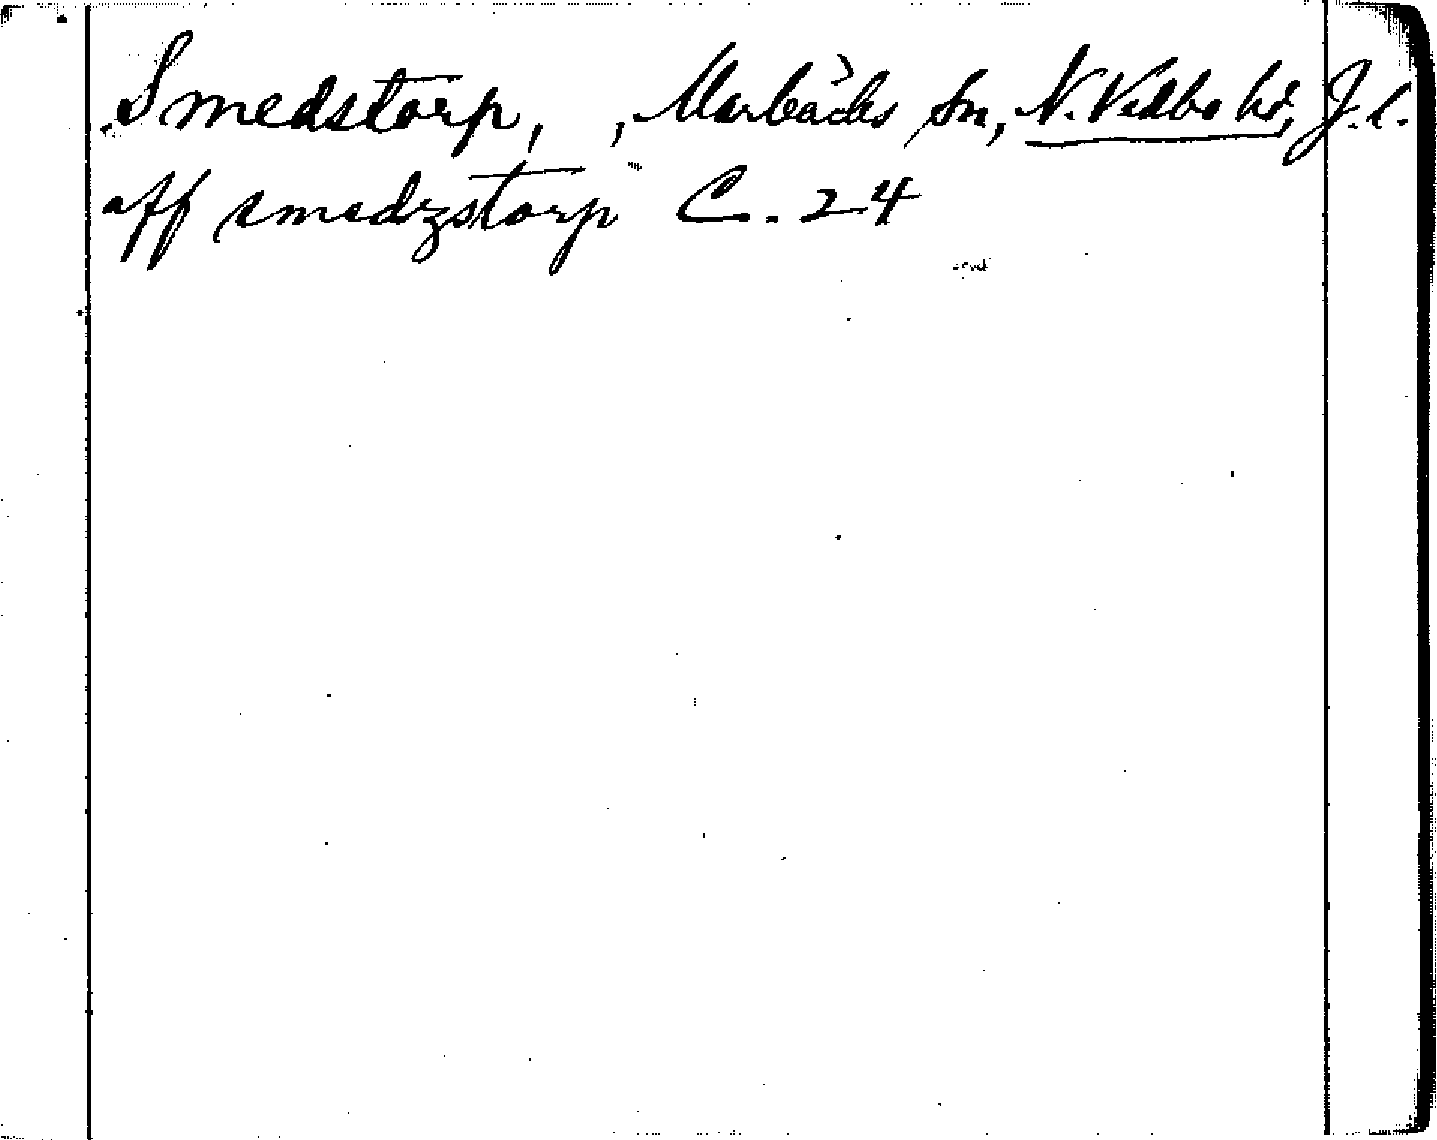 Smedstorp, , Marbäcks sn, N. Vedbo hd, J. l.
aff smedzstorp C. 24